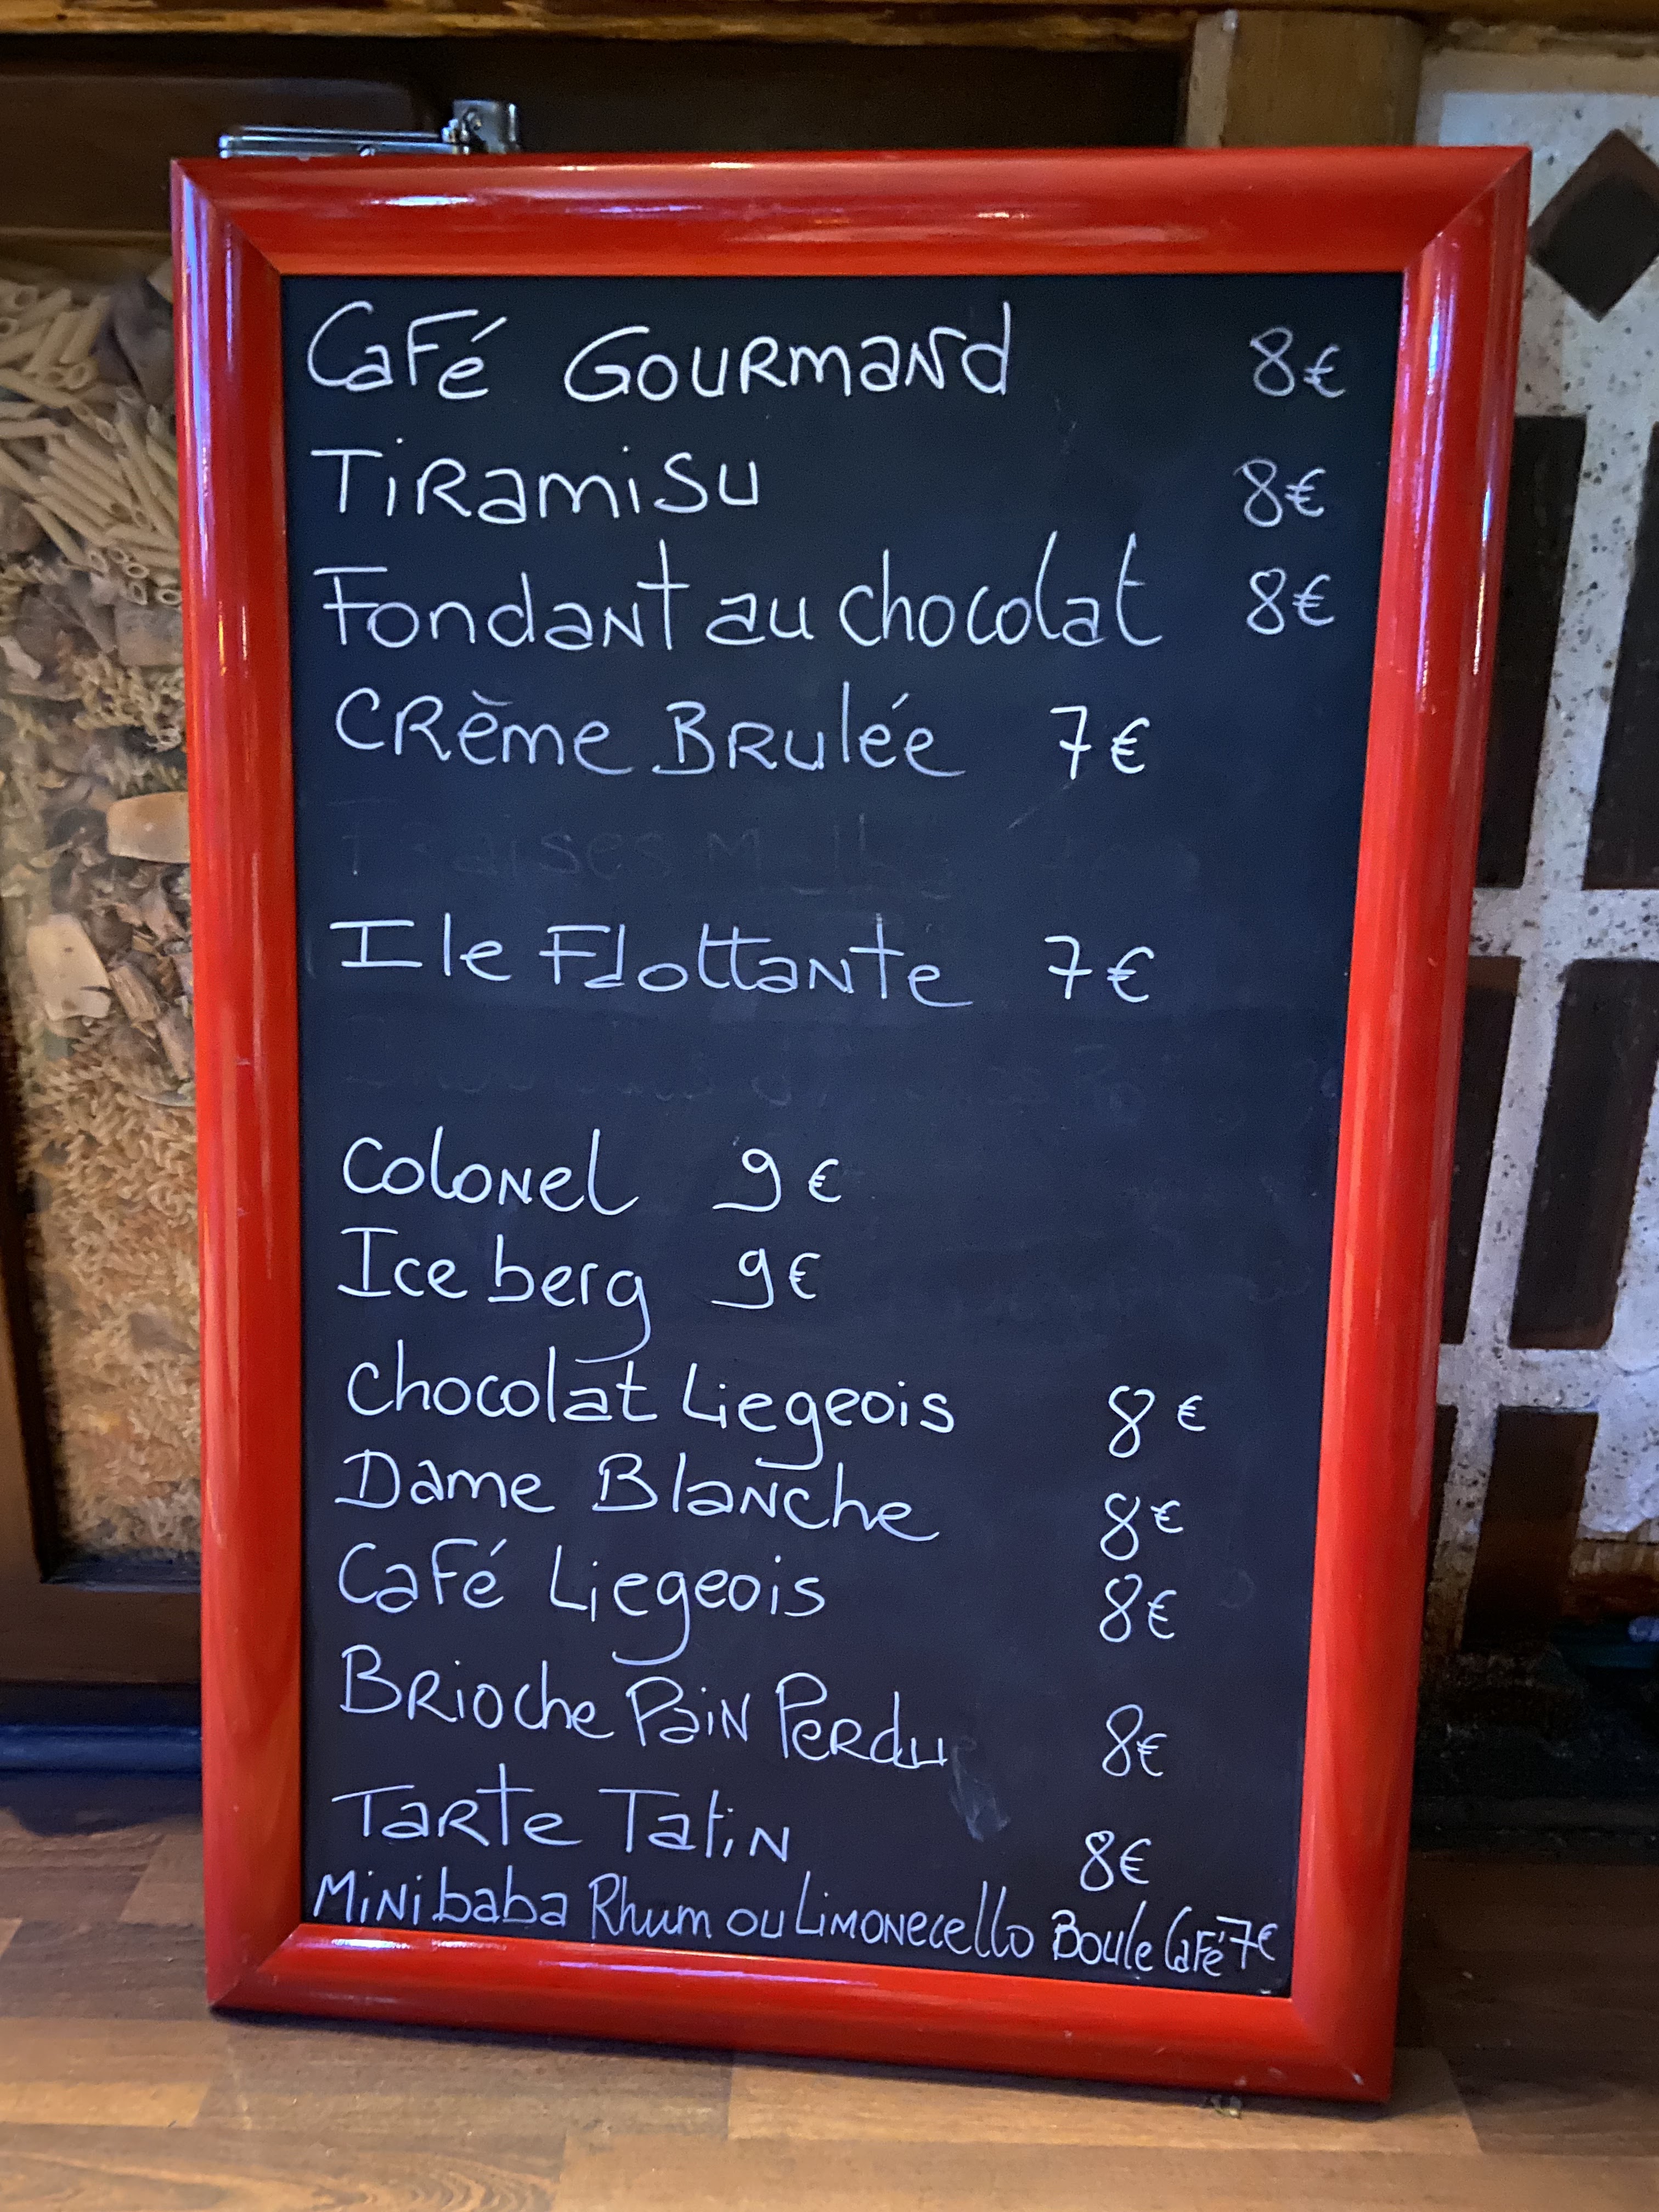 Café Gourmand 8€
Tiramisu 8€
Fondant au chocolat 8€
Crème Brulée 7€
Ile Flottante 7€
Colonel 9€
Ice berg 9€
Chocolat Liegeois 8€
Dame Blanche 8€
Café Liegeois 8€
Brioche Pain Perdu 8€
Tarte Tatin 8€
Mini baba Rhum ou Limonecello Boule Café 7€